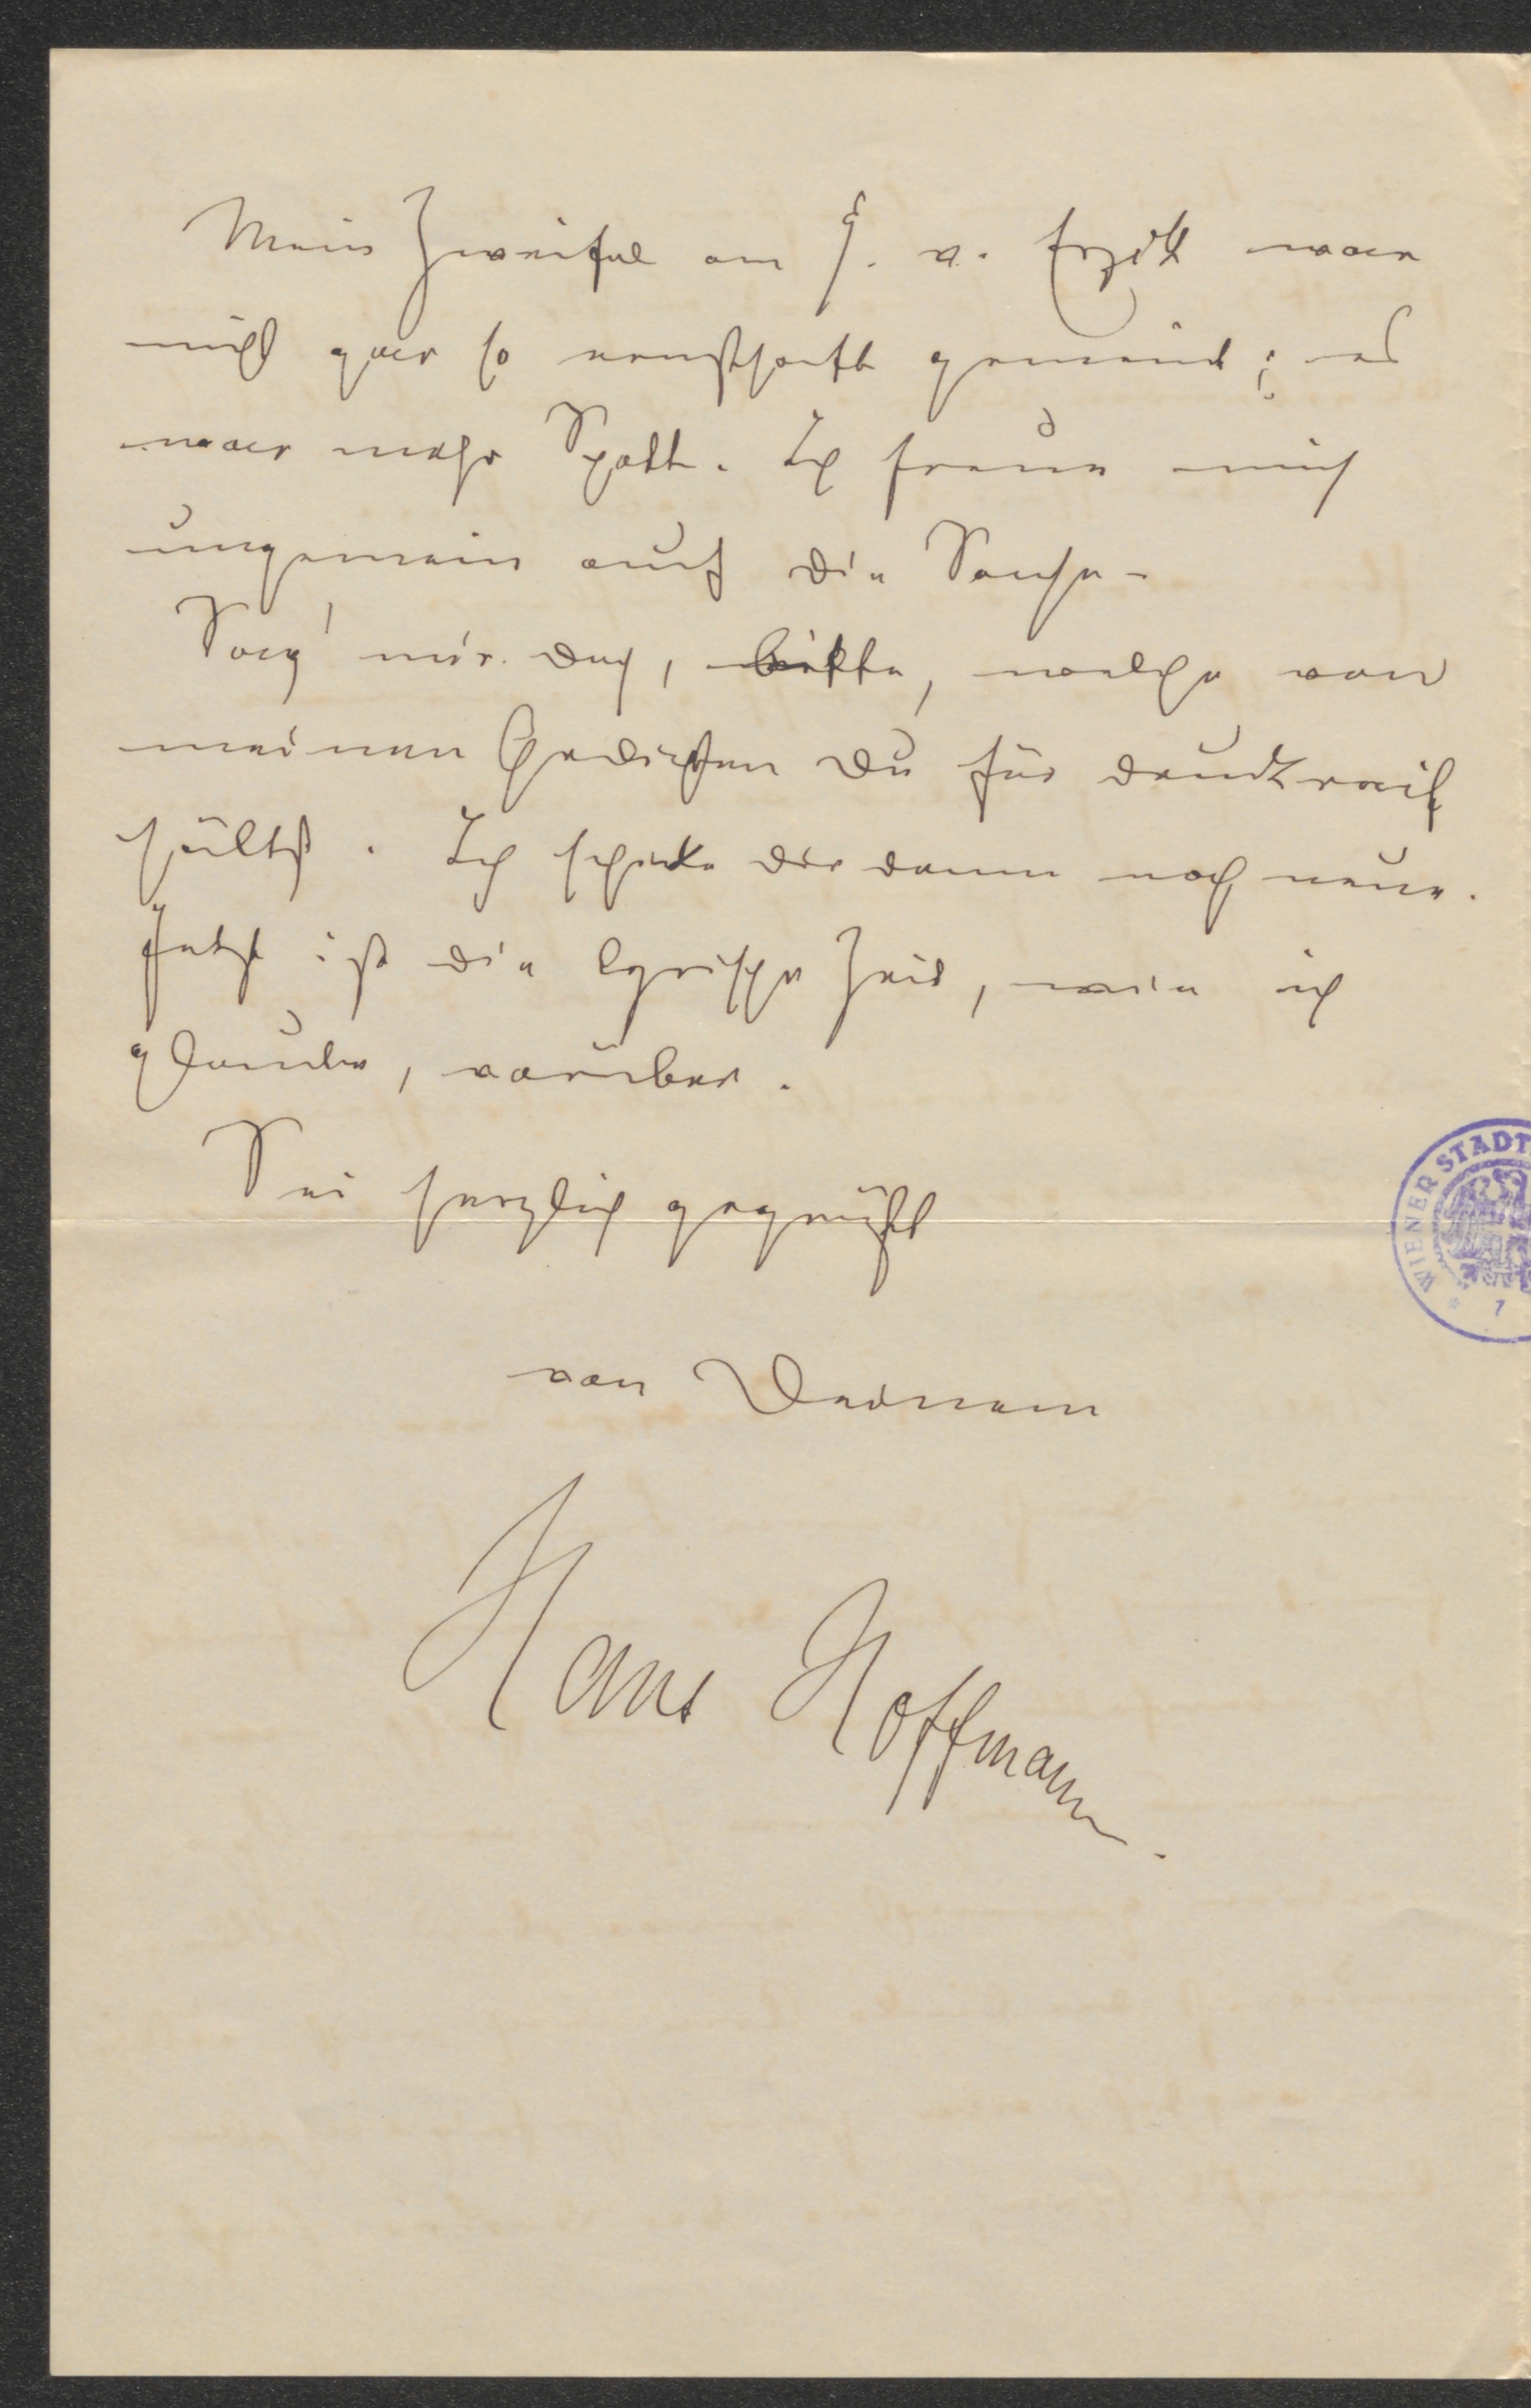 Mein Zweifel am J. v. war
nicht gar so ernsthaft gemeint; es
war mehr Spott. Ich freue mich
ungemein auf die Sache.
Sag' mir doch, bitte, welche von
meinen Gedichten Du für druckreif
hältst. Ich schicke dir dann noch neue.
Jetzt ist die lyrische Zeit, wie ich
glaube, vorüber.
Sei herzlich gegrüßt
von Deinem
Hans Hoffmann.
WIENER STADT
* 1